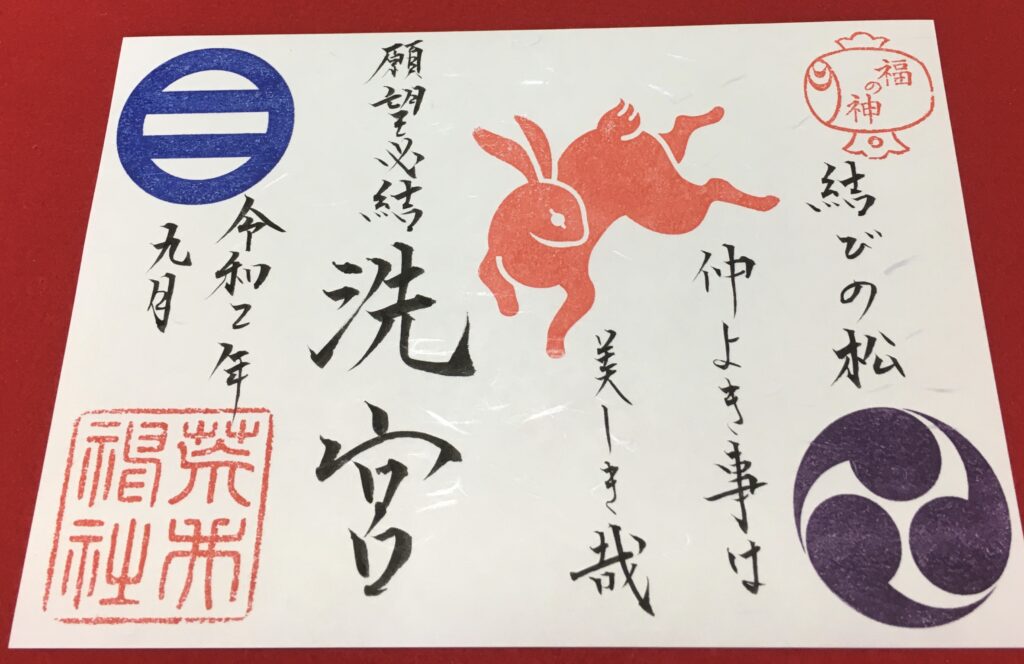 福の神
結びの松
仲よき事は
美しき哉
願望必結
洗宮
令和二年
九月
荒木
神社